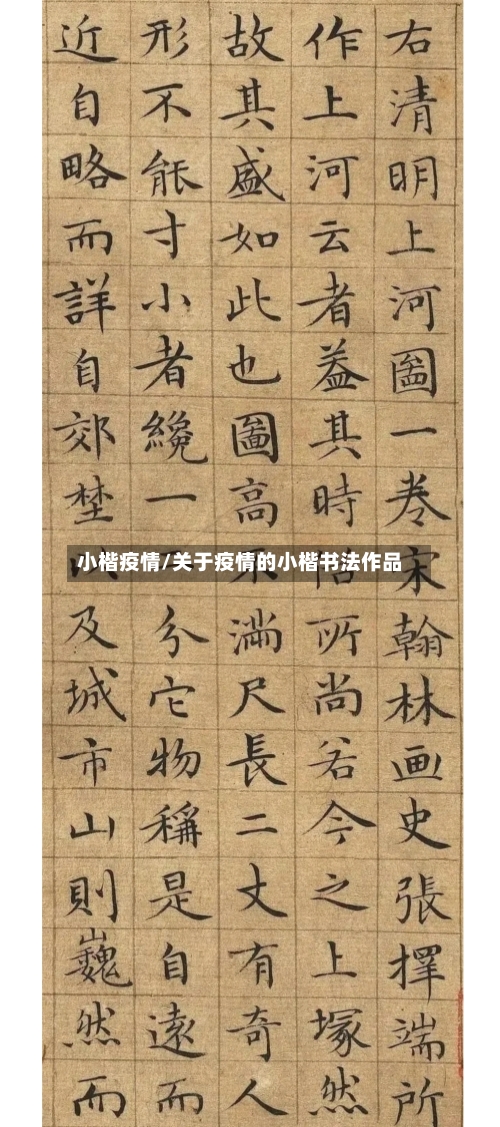 右清明上河圖一卷宋翰林画史張擇端所
作上河云者蓋其時俗所尚若今之上塚然
故其盛如此也圖高不滿尺長二丈有奇人
形不能寸小者纔一分它物稱是自遠而
近自略而詳自郊埜以及城市山則巍然而
小楷疫情/关于疫情的小楷书法作品